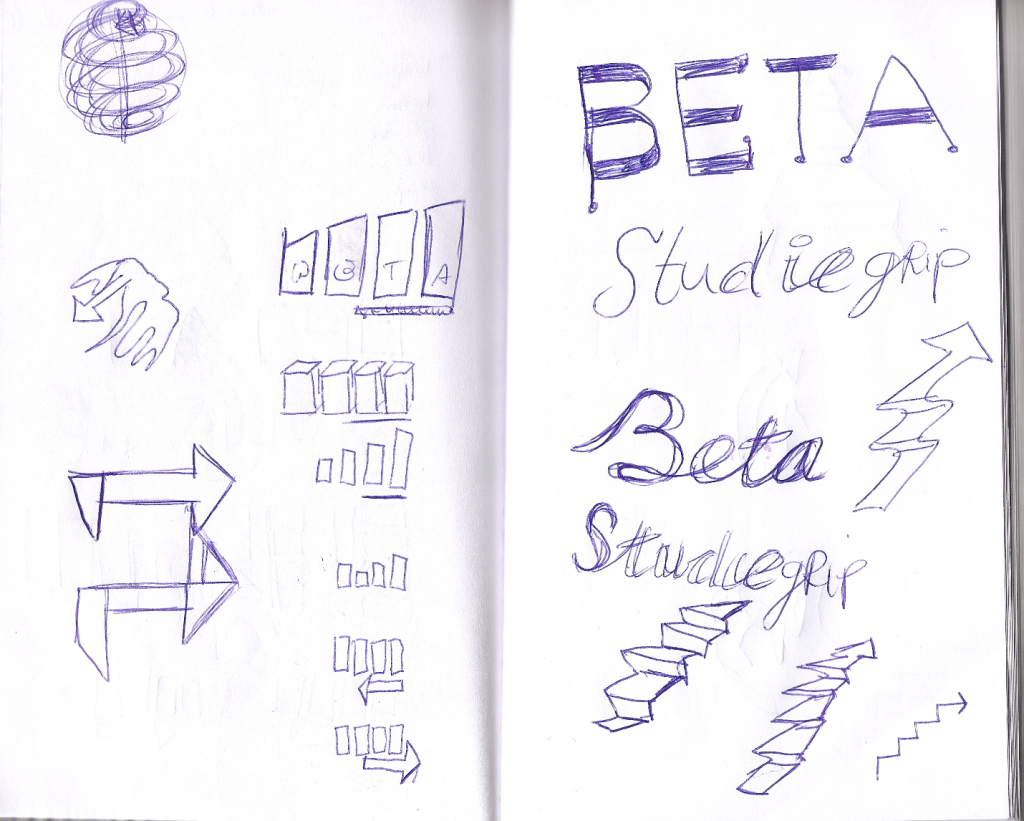 T A
BETA
Studiegrip
Beta
Studiegrip